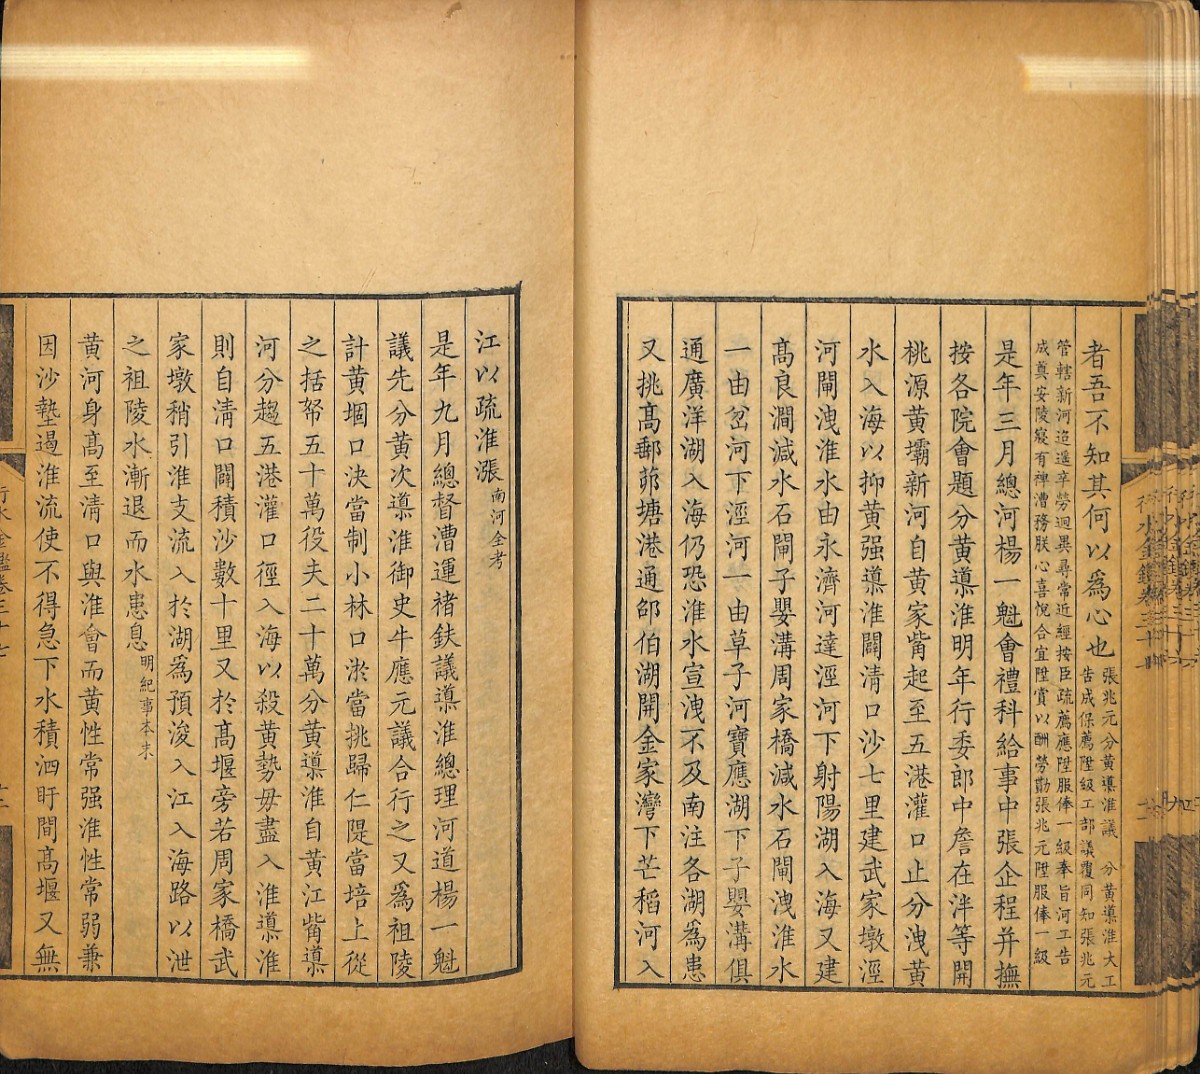 者吾不知其何以爲心也張兆元分黃導淮議　分黃導淮大工
告成保薦陞級工部議覆同知張兆元
管轄新河迢遥辛勞迥異尋常近經按臣疏薦應陞服俸一級奉旨河工告
成奠安陵寢有裨漕務朕心喜悅合宜陞賞以酬勞勩張兆元陞服俸一級
是年三月總河楊一魁會禮科給事中張企程并撫
按各院會題分黃導淮明年行委郎中詹在泮等開
桃源黃壩新河自黃家觜起至五港灌口止分洩黃
水入海以抑黃强導淮闢清口沙七里建武家墩涇
河閘洩淮水由永濟河達涇河下射陽湖入海又建
髙良澗減水石閘子嬰溝周家橋減水石閘洩淮水
一由岔河下涇河一由草子河寶應湖下子嬰溝俱
通廣洋湖入海仍恐淮水宣洩不及南注各湖爲患
又挑髙郵茆塘港通邵伯湖開金家灣下芒稻河入
江以疏淮漲南河全考
是年九月總督漕運禇鈇議導淮總理河道楊一魁
議先分黃次導淮御史牛應元議合行之又爲祖陵
計黃堌口決當制小林口淤當挑歸仁隄當培上從
之括帑五十萬役夫二十萬分黃導淮自黃江觜導
河分趨五港灌口徑入海以殺黃勢毋盡入淮導淮
則自清口闢積沙數十里又於髙堰旁若周家橋武
家墩稍引淮支流入於湖爲預浚入江入海路以泄
之祖陵水漸退而水患息明紀事本末
黃河身髙至清口與淮會而黃性常强淮性常弱兼
因沙墊遏淮流使不得急下水積泗盱間髙堰又無